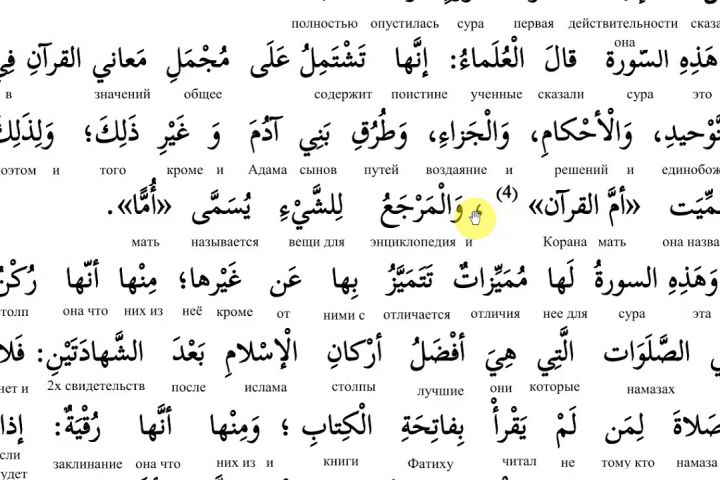 полностью опустилась сура первая действительности
هَذِهِ السّورة قالَ الْعُلَماءُ: إنَّها تَشْتَمِلُ عَلَى مُجْمَلِ مَعاني القرآنِ
она
в значений общее содержит поистине ученные сказали сура это
وَالْأحْكامِ، وَالْجَزاءِ، وَطُرُقِ بَنِي آدُمَ وَ غَيْرِ ذَلِكَ؛
и того кроме и Адама сынов путей воздаяние и решений и
«أمَّ القرآن» (4) ؛ وَالْمَرْجَعُ لِلشَّيْءِ يُسَمَّى «أُمًّا».
мать называется вещи для энциклопедия и Корана мать она
وَهَذِهِ السورةُ لَها مُمَيِّزاتٌ تَتَمَيَّزُ بِها عَن غَيْرِها؛ مِنْها أنّها رُكْنٌ
она что них из неё кроме от ними с отличается отличия нее для сура эта
الصَّلَوَات الَّتِي هِيَ أفْضَلُ أرْكانِ الْإسْلامِ بَعْدَ الشَّهادَتَيْنِ: فَلا
нет и 2х свидетельств после ислама столпы лучшие они которые намазах
لِمَن لَمْ يَقْرأْ بِفاتِحَةِ الْكِتابِ ؛ وَمِنْها أنَّها رُقْيَةٌ: إذا
заклинание она что них из и книги Фатиху читал не тому кто намаза